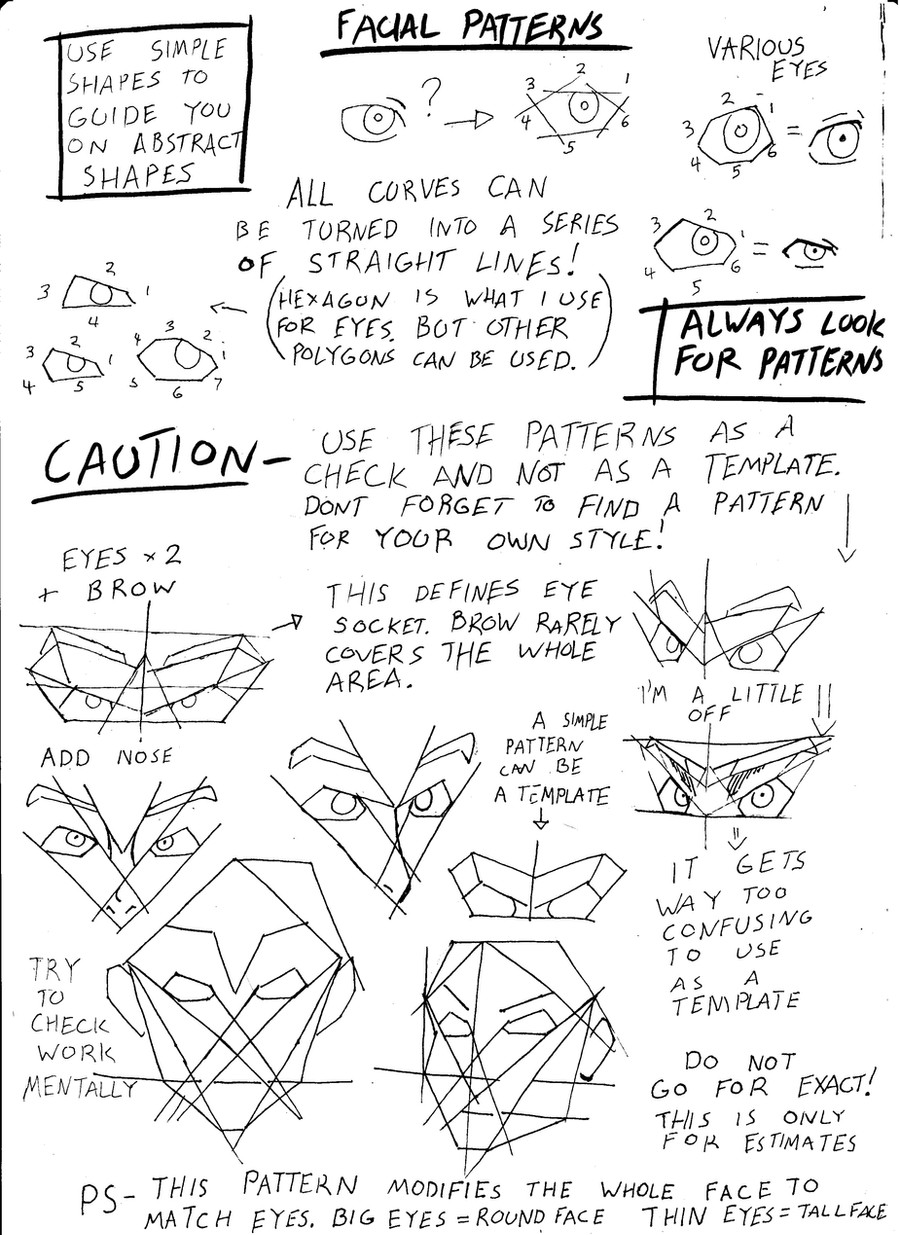 FACIAL PATTERNS
USE SIMPLE
SHAPES TO
GUIDE YOU
ON ABSTRACT
SHAPES
?
3 2 1
4 5 6
VARIOUS
EYES
2 1
3
4 5 6
=
ALL CURVES CAN
BE TURNED INTO A SERIES
OF STRAIGHT LINES!
(HEXAGON IS WHAT I USE
FOR EYES. BUT OTHER
POLYGONS CAN BE USED.)
3 2
1
4 5 6
=
2
3 1
4
3 2 1
4 5
4 3 2
1
5 6 7
ALWAYS LOOK
FOR PATTERNS
CAUTION-
USE THESE PATTERNS AS A
CHECK AND NOT AS A TEMPLATE.
DONT FORGET TO FIND A PATTERN
FOR YOUR OWN STYLE!
EYES x 2
+ BROW
THIS DEFINES EYE
SOCKET. BROW RARELY
COVERS THE WHOLE
AREA.
I'M A LITTLE
OFF
ADD NOSE
A SIMPLE
PATTERN
CAN BE
A TEMPLATE
IT GETS
WAY TOO
CONFUSING
TO USE
AS A
TEMPLATE
TRY
TO
CHECK
WORK
MENTALLY
DO NOT
GO FOR EXACT!
THIS IS ONLY
FOR ESTIMATES
PS- THIS PATTERN MODIFIES THE WHOLE FACE TO
MATCH EYES. BIG EYES = ROUND FACE THIN EYES = TALL FACE